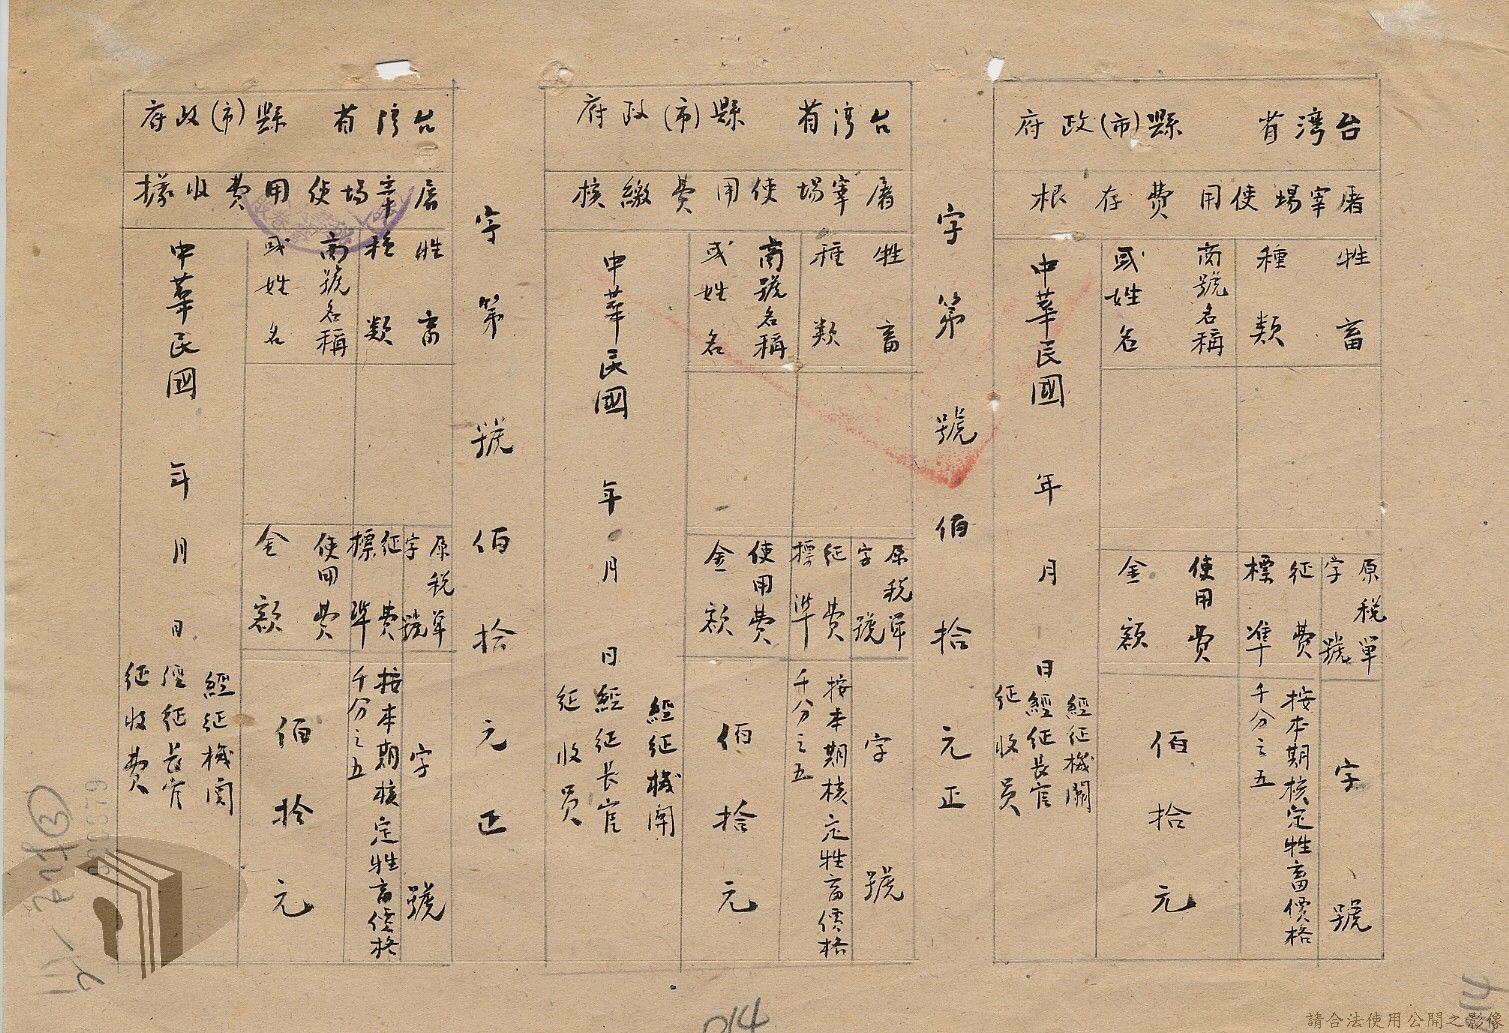 台湾省　縣(市)政府
屠宰場使用費存根
牲畜
種類
商號名稱
或姓名
原稅單
字號
征費
標準
使用費
金額
字　號
按本期核定牲畜價格
千分之五
佰拾元
中華民國　年　月　日
經征機關
經征長官
征收員
字第　號　佰　拾　元正
台湾省　縣(市)政府
屠宰場使用費繳核
牲畜
種類
商號名稱
或姓名
原稅單
字號
征費
標準
使用費
金額
字　號
按本期核定牲畜價格
千分之五
佰拾元
中華民國　年　月　日
經征機関
經征長官
征收員
字第　號　佰　拾　元　正
台湾省　縣(市)政府
屠宰場使用費收據
牲畜
種類
商號名稱
或姓名
原稅單
字號
征費
標準
使用費
金額
字　號
按本期核定牲畜價格
千分之五
佰拾元
中華民國　年　月　日
經征機関
經征長官
征收費
014
請合法使用公開之影像